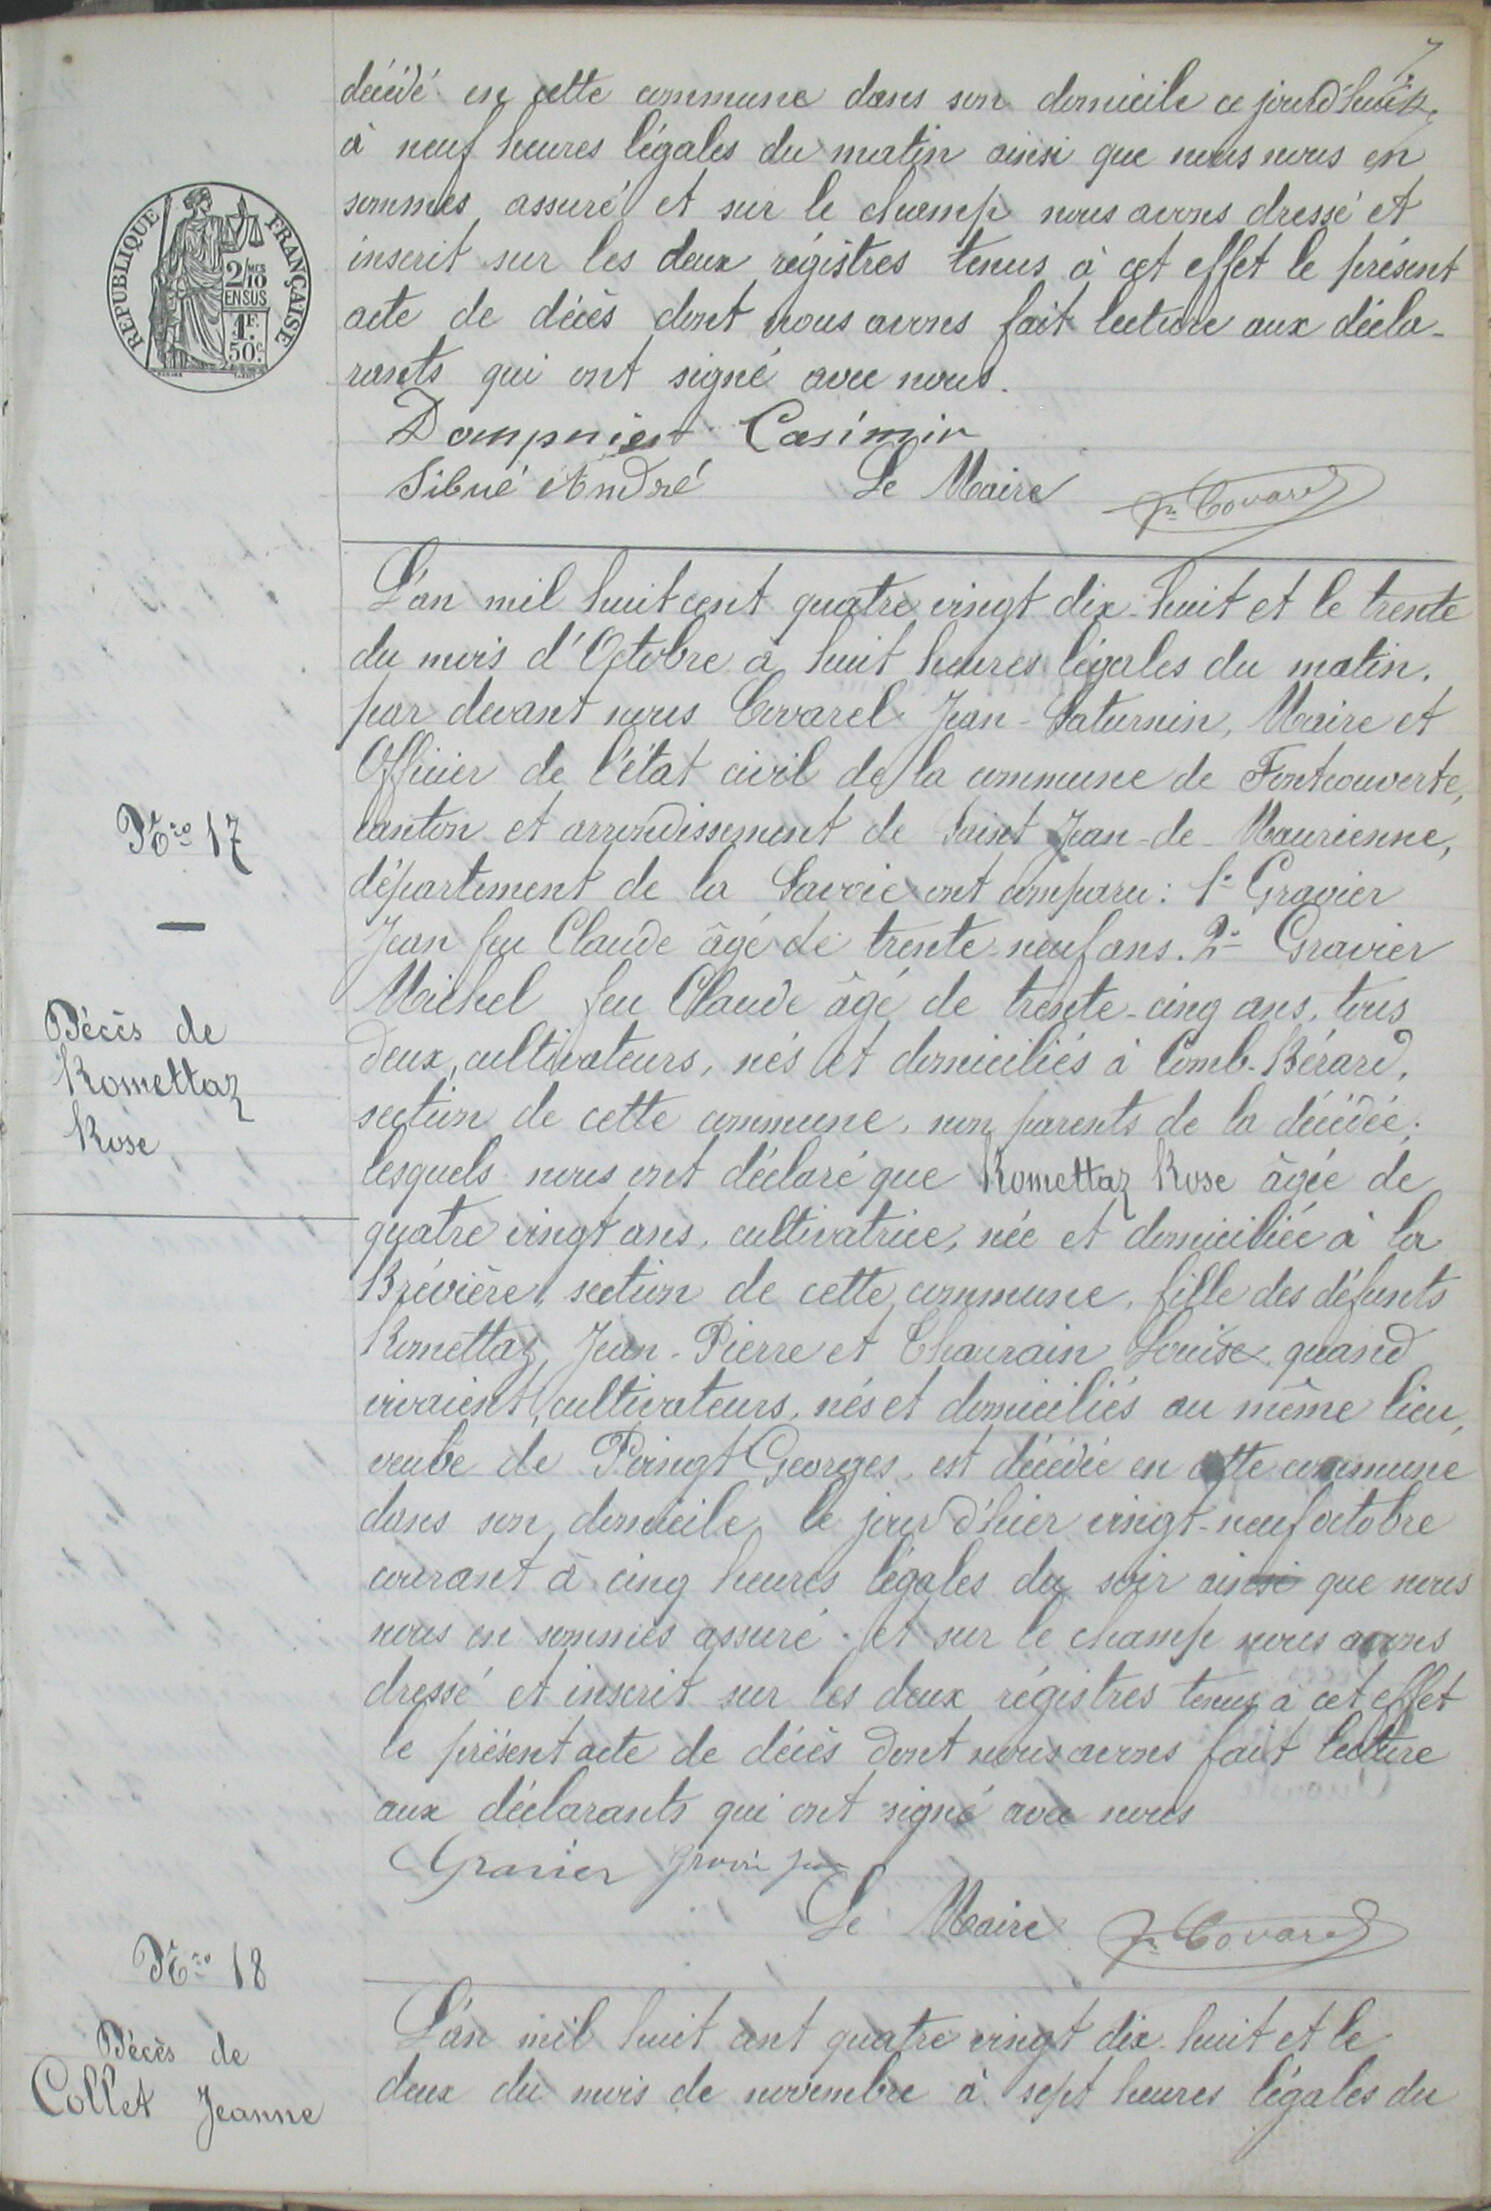 7
décédé en cette commune dans son domicile ce jourd'hui
à neuf heures légales du matin ainsi que nous nous en
sommes assuré et sur le champ nous avons dressé et
inscrit sur les deux régistres tenus à cet effet le présent
acte de décès dont nous avons fait lecture aux décla-
rants qui ont signé avec nous.
REPUBLIQUE FRANÇAISE
2/10 MES
EN SUS
1F.
50C.
Dompnier Casimir
Sibué André Le Maire Jn Covarel
L'an mil huit cent quatre vingt dix-huit et le trente
du mois d'Octobre à huit heures légales du matin.
par devant nous Covarel Jean-Saturnin, Maire et
Officier de l'état civil de la commune de Fontcouverte,
canton et arrondissement de Saint Jean-de-Maurienne,
département de la Savoie ont comparu : 1° Gravier
Jean feu Claude âgé de trente-neuf ans. 2° Gravier
Michel feu Claude âgé de trente-cinq ans, tous
deux cultivateurs, nés et domiciliés à Comb-Bérard,
section de cette commune, non parents de la décédée;
lesquels nous ont déclaré que Romettaz Rose âgée de
quatre vingt ans, cultivatrice, née et domiciliée à la
Brévière, section de cette commune, fille des défunts
Romettaz Jean-Pierre et Chaurain Louise quand
vivaient cultivateurs, nés et domiciliés au même lieu,
veube de Poingt Georges, est décédée en cette commune
dans son domicile le jour d'hier vingt-neuf octobre
courant à cinq heures légales du soir ainsi que nous
nous en sommes assuré et sur le champ nous avons
dressé et inscrit sur les deux régistres tenus à cet effet
le présent acte de décès dont nous avons fait lecture
aux déclarants qui ont signé avec nous
Gravier
Le Maire Jn Covarel
Nro 17
Décès de
Romettaz
Rose
Nro 18
Décès de
Collet Jeanne
L'an mil huit cent quatre vingt dix-huit et le
deux du mois de novembre à sept heures légales du